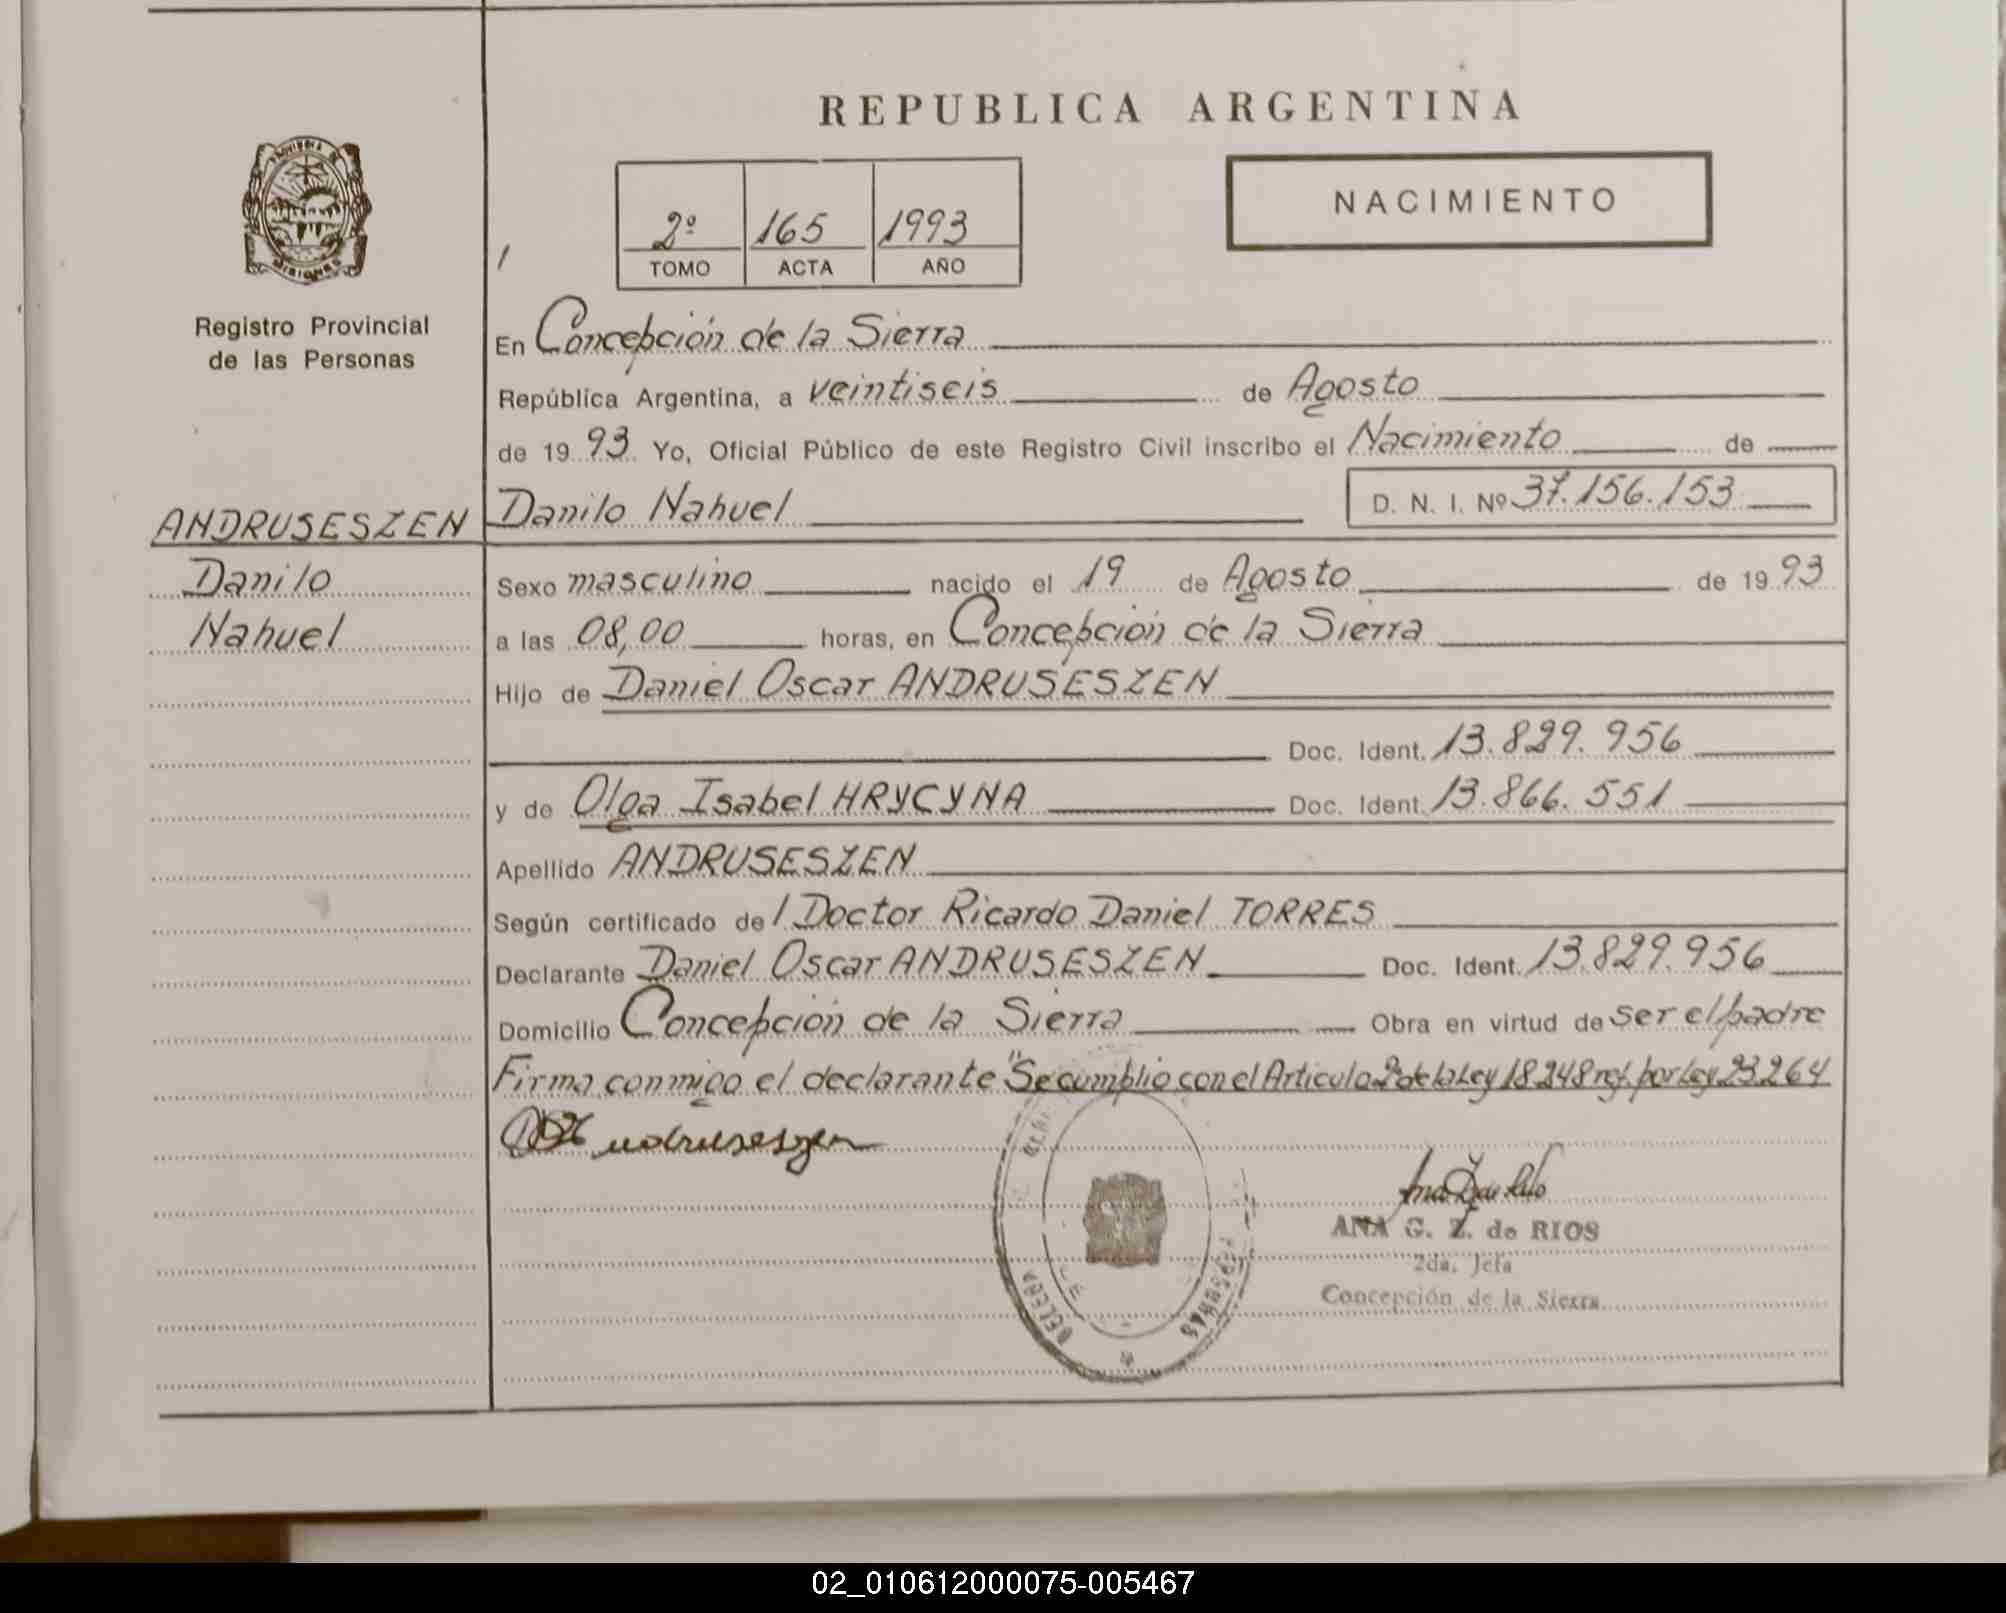 REPUBLICA ARGENTINA
NACIMIENTO
2º 165 1993
TOMO ACTA AÑO
PROVINCIA DE
MISIONES
Registro Provincial
de las Personas
En Concepción de la Sierra
República Argentina, a veintiseis de Agosto
de 1993 Yo, Oficial Público de este Registro Civil inscribo el Nacimiento de
ANDRUSESZEN Danilo Nahuel D. N. I. Nº 37.156.153
Danilo Sexo masculino nacido el 19 de Agosto de 1993
Nahuel a las 08,00 horas, en Concepción de la Sierra
Hijo de Daniel Oscar ANDRUSESZEN
Doc. Ident. 13.829.956
y de Olga Isabel HRYCYNA Doc. Ident. 13.866.551
Apellido ANDRUSESZEN
Según certificado del Doctor Ricardo Daniel TORRES
Declarante Daniel Oscar ANDRUSESZEN Doc. Ident. 13.829.956
Domicilio Concepción de la Sierra Obra en virtud de ser el padre
Firma conmigo el declarante "Se cumplio con el Articulo 2 de la Ley 18248 ref. por Ley 23264
ANA G. Z. de RIOS
2da. Jefa
Concepción de la Sierra
02_010612000075-005467